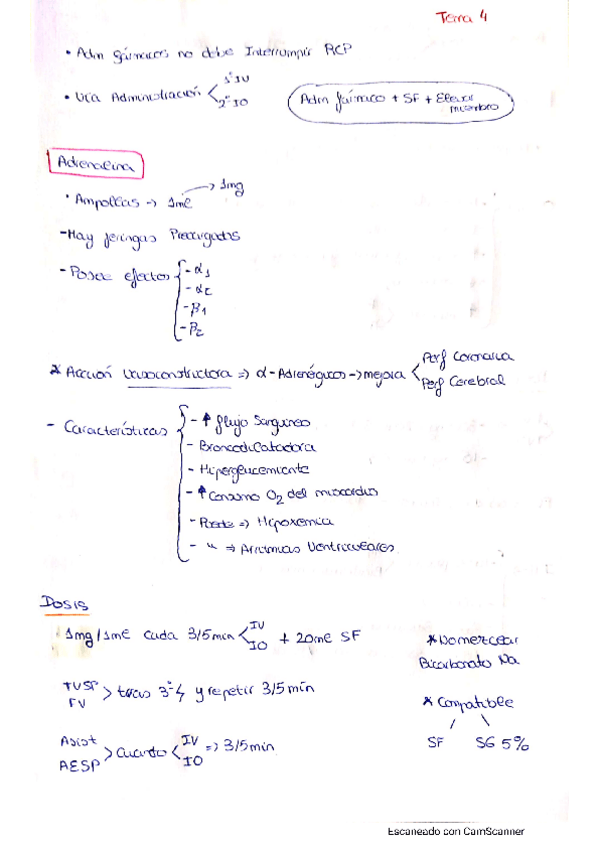 Tema 4
• Adm fármacos no debe Interrumpir RCP
• Vía Administración < 1º IV
2º IO
Adm fármaco + SF + Elevar
miembro
Adrenalina
• Ampollas -> 1ml -> 1mg
- Hay jeringas Precargadas
- Posee efectos { - α1
- α2
- β1
- β2
* Acción vasoconstrictora => α-Adrenérgicos -> mejora < Perf Coronaria
Perf Cerebral
- Características { - ↑ flujo Sanguíneo
- Broncodilatadora
- Hiperglucemiante
- ↑ Consumo O2 del miocardio
- Puede => Hipoxemia
- " => Arritmias Ventriculares
Dosis
1mg/1ml cada 3/5min < IV
IO + 20ml SF
TVSP
FV > tras 3º-4 y repetir 3/5min
Asist
AESP > Cuando < IV
IO => 3/5min
* No mezclar
Bicarbonato Na
* Compatible
SF SG 5%
Escaneado con CamScanner